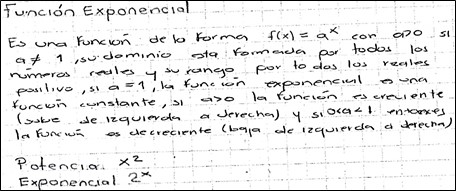 Función Exponencial
Es una función de la forma f(x) = aˣ con a>0 si
a ≠ 1, su dominio esta formada por todos los
números reales y su rango por todos los reales
positivo, si a = 1, la función exponencial es una
función constante, si a>0 la función es creciente
(sube de izquierda a derecha) y si 0<a<1 entonces
la función es decreciente (baja de izquierda a derecha)
Potencia. x²
Exponencial 2ˣ